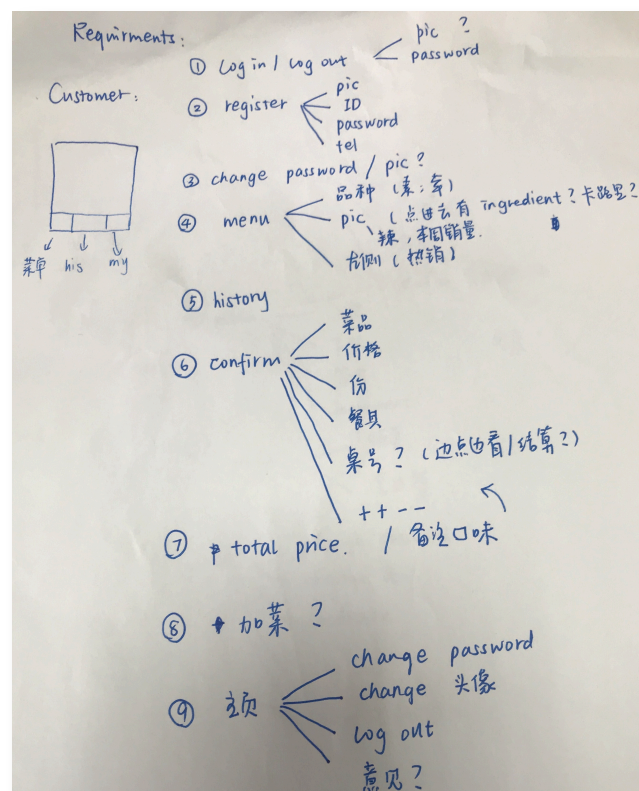 Requirments:
① Log in / Log out
pic ?
password
Customer:
② register
pic
ID
password
tel
③ change password / pic ?
④ menu
品种 (素;荤)
pic (点进去有 ingredient? 卡路里?
辣, 本周销量.
左侧 (热销)
菜单 his my
⑤ history
⑥ confirm
菜品
价格
份
餐具
桌号? (边点边看/结算?)
++ --
⑦ total price. / 备注口味
⑧ 加菜 ?
⑨ 主页
change password
change 头像
log out
意见?